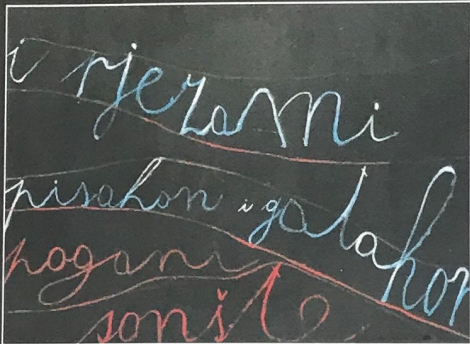 i rjezami
pisahon i gatahon
pogani
sonšt